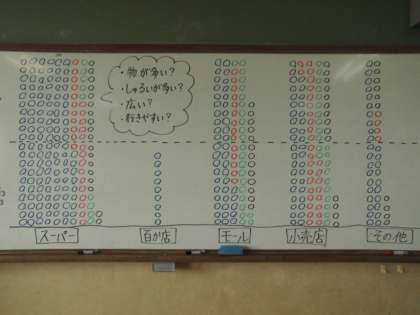 ・物が多い?
・しゅるいが多い?
・広い?
・行きやすい?
スーパー
百か店
モール
小売店
その他